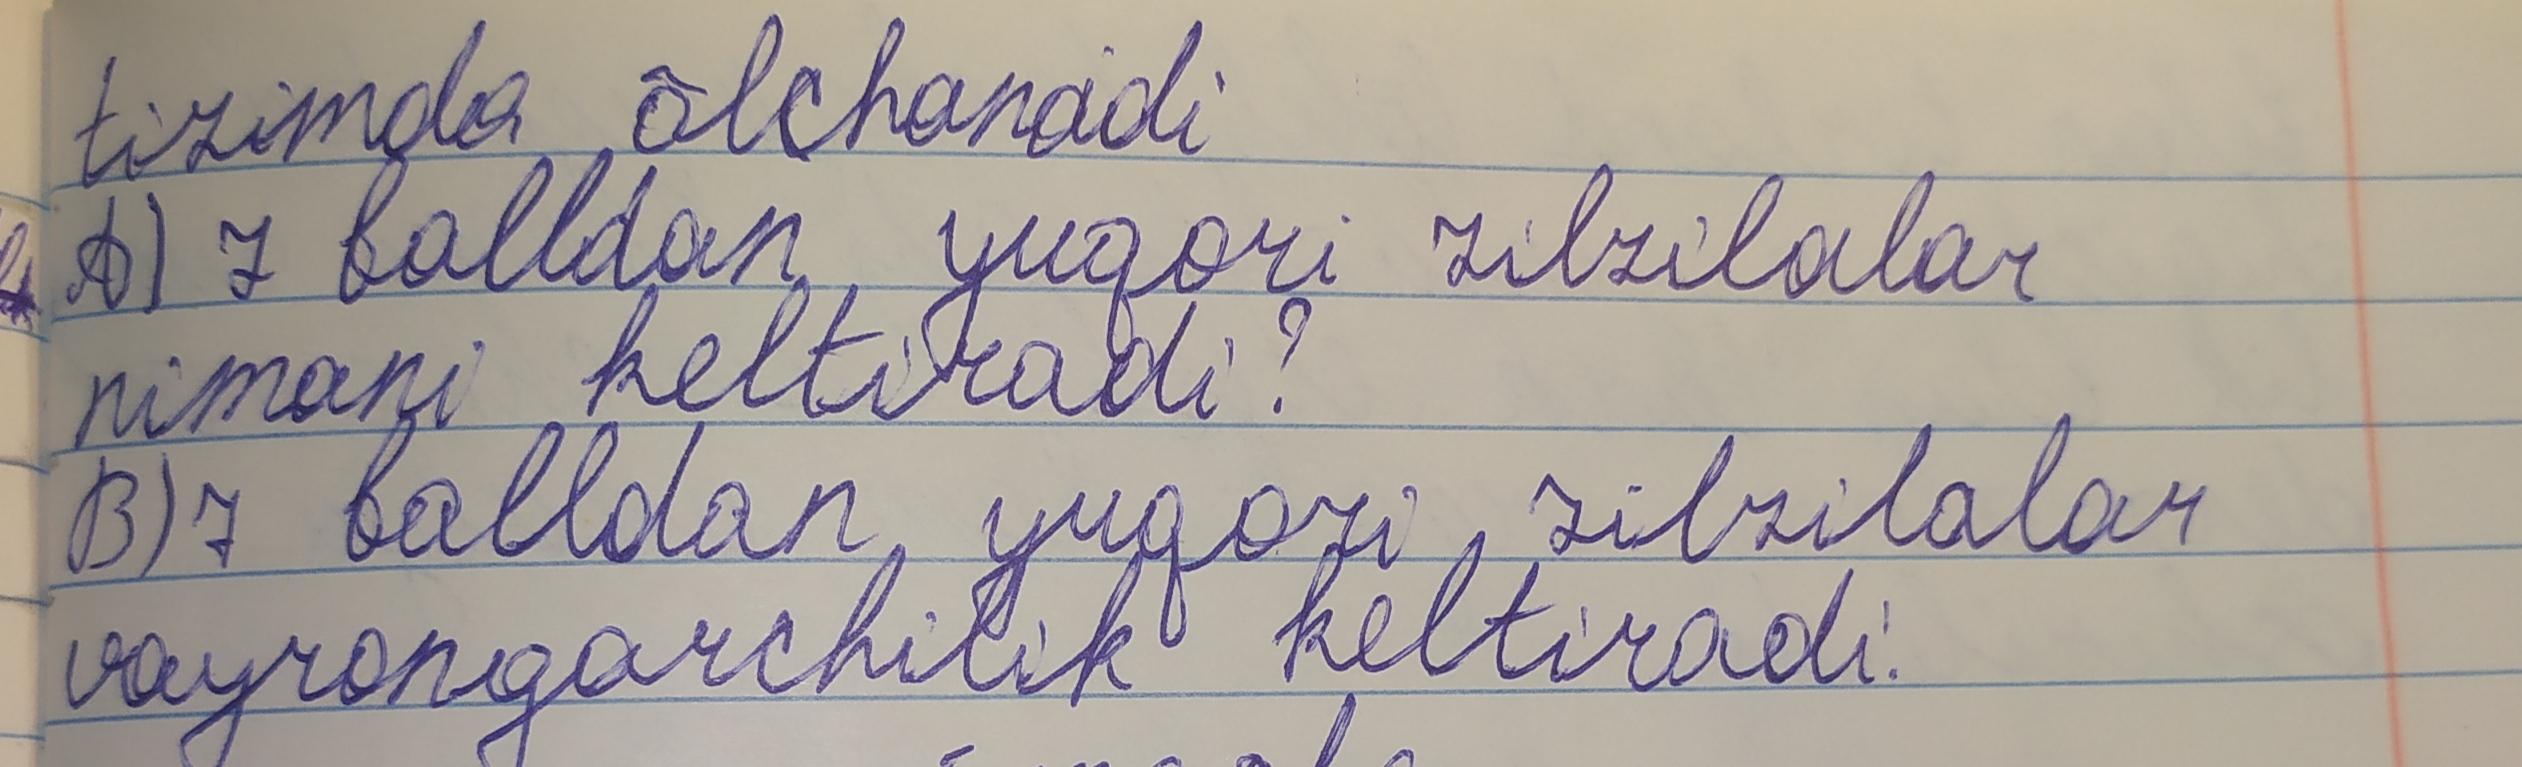 tizimda õlchanadi
A) 7 balldan yuqori zilzilalar
nimani keltiradi?
B) 7 balldan yuqori zilzilalar
vayrongarchilik keltiradi.